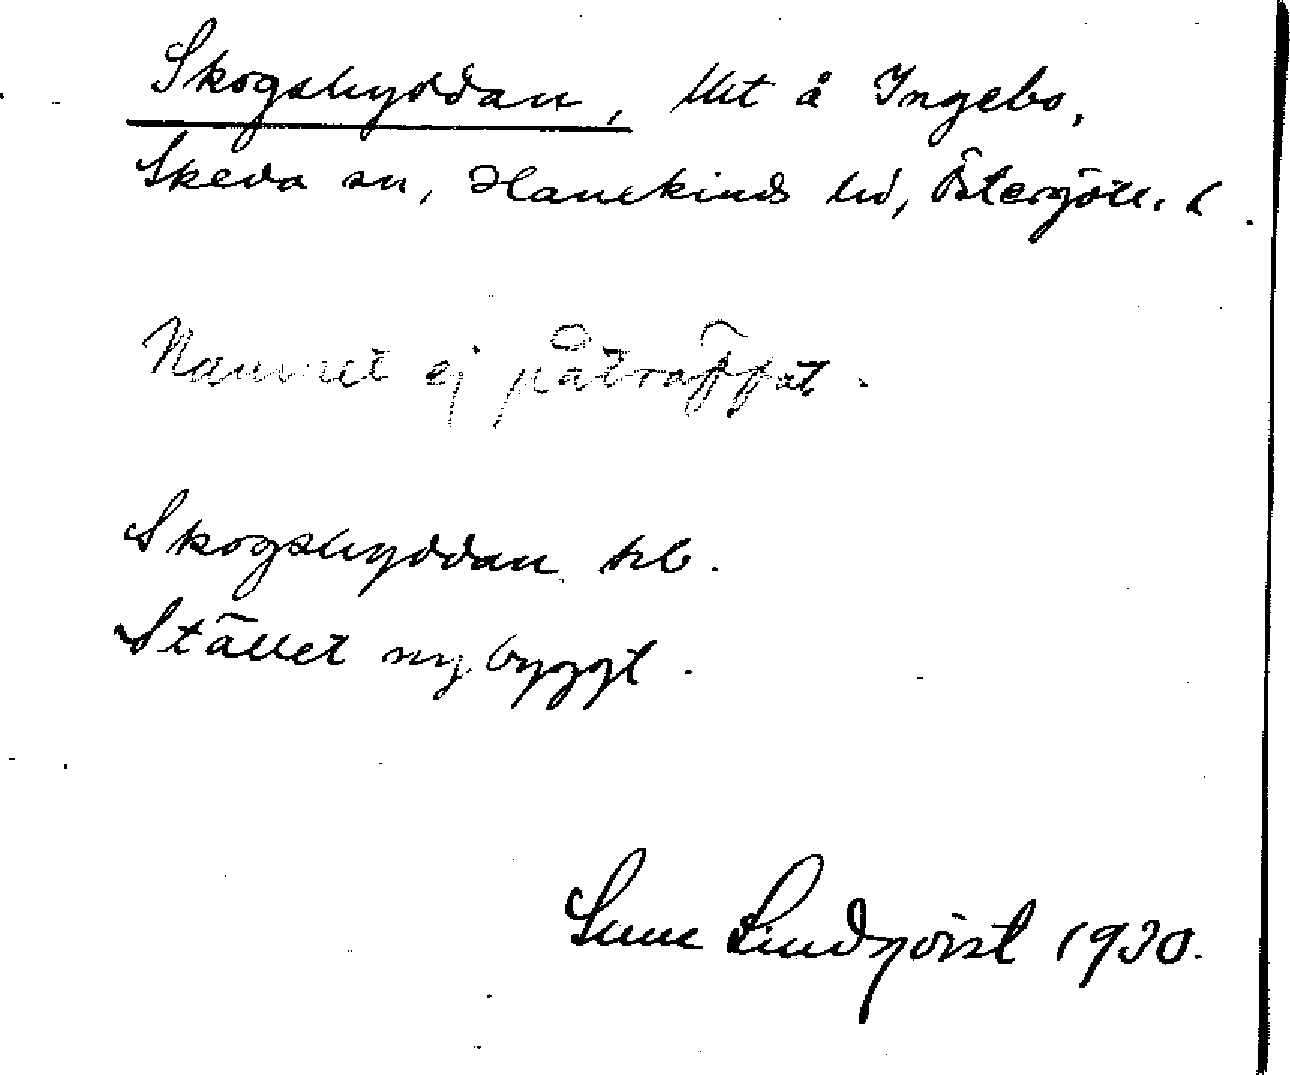 Skogshyddan, lht å Ingebo,
Skeda sn, Hanekinds hd, Östergötl. l.
Namnet ej påträffat.
Skogshyddan hb.
Stället nybyggt.
Sune Lindqvist 1930.